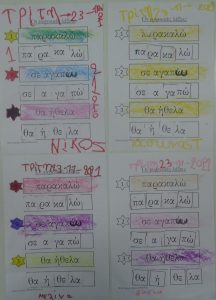 ΤΡΙΤΗ 23-11-
παρακαλώ
πα ρα κα λώ
σε αγαπώ
σε α γα πώ
θα ήθελα
θα ή θε λα
ΝΙΚΟΣ
ΤΡΙΤΗ 23-11-
παρακαλώ
πα ρα κα λώ
σε αγαπώ
σε α γα πώ
θα ήθελα
θα ή θε λα
ΤΡΙΤΗ 23-11-2021
παρακαλώ
πα ρα κα λώ
σε αγαπώ
σε α γα πώ
θα ήθελα
θα ή θε λα
ΤΡΙΤΗ 23-11-2021
παρακαλώ
πα ρα κα λώ
σε αγαπώ
σε α γα πώ
θα ήθελα
θα ή θε λα